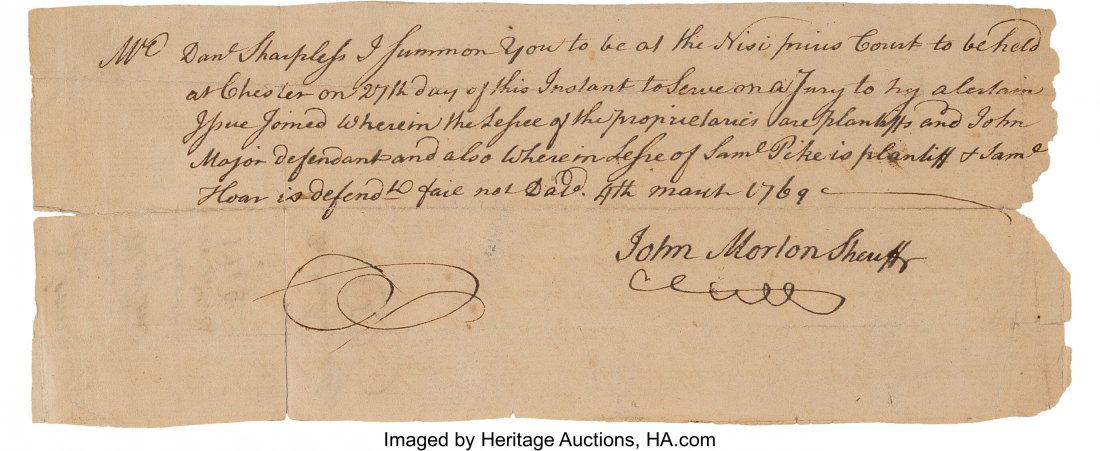 Mr Danl Sharpless I Summon You to be at the Nisi prius Court to be held
at Chester on 27th day of this Instant to Serve on a Jury to try a Certain
Issue Joined Wherein the Lessee of the proprietaries are plantiffs and John
Major defendant and also Wherein Lessee of Saml Pike is plantiff & Saml
Hoar is defendt faie not Dated 4th march 1769
John Morton Sheriff
Imaged by Heritage Auctions, HA.com